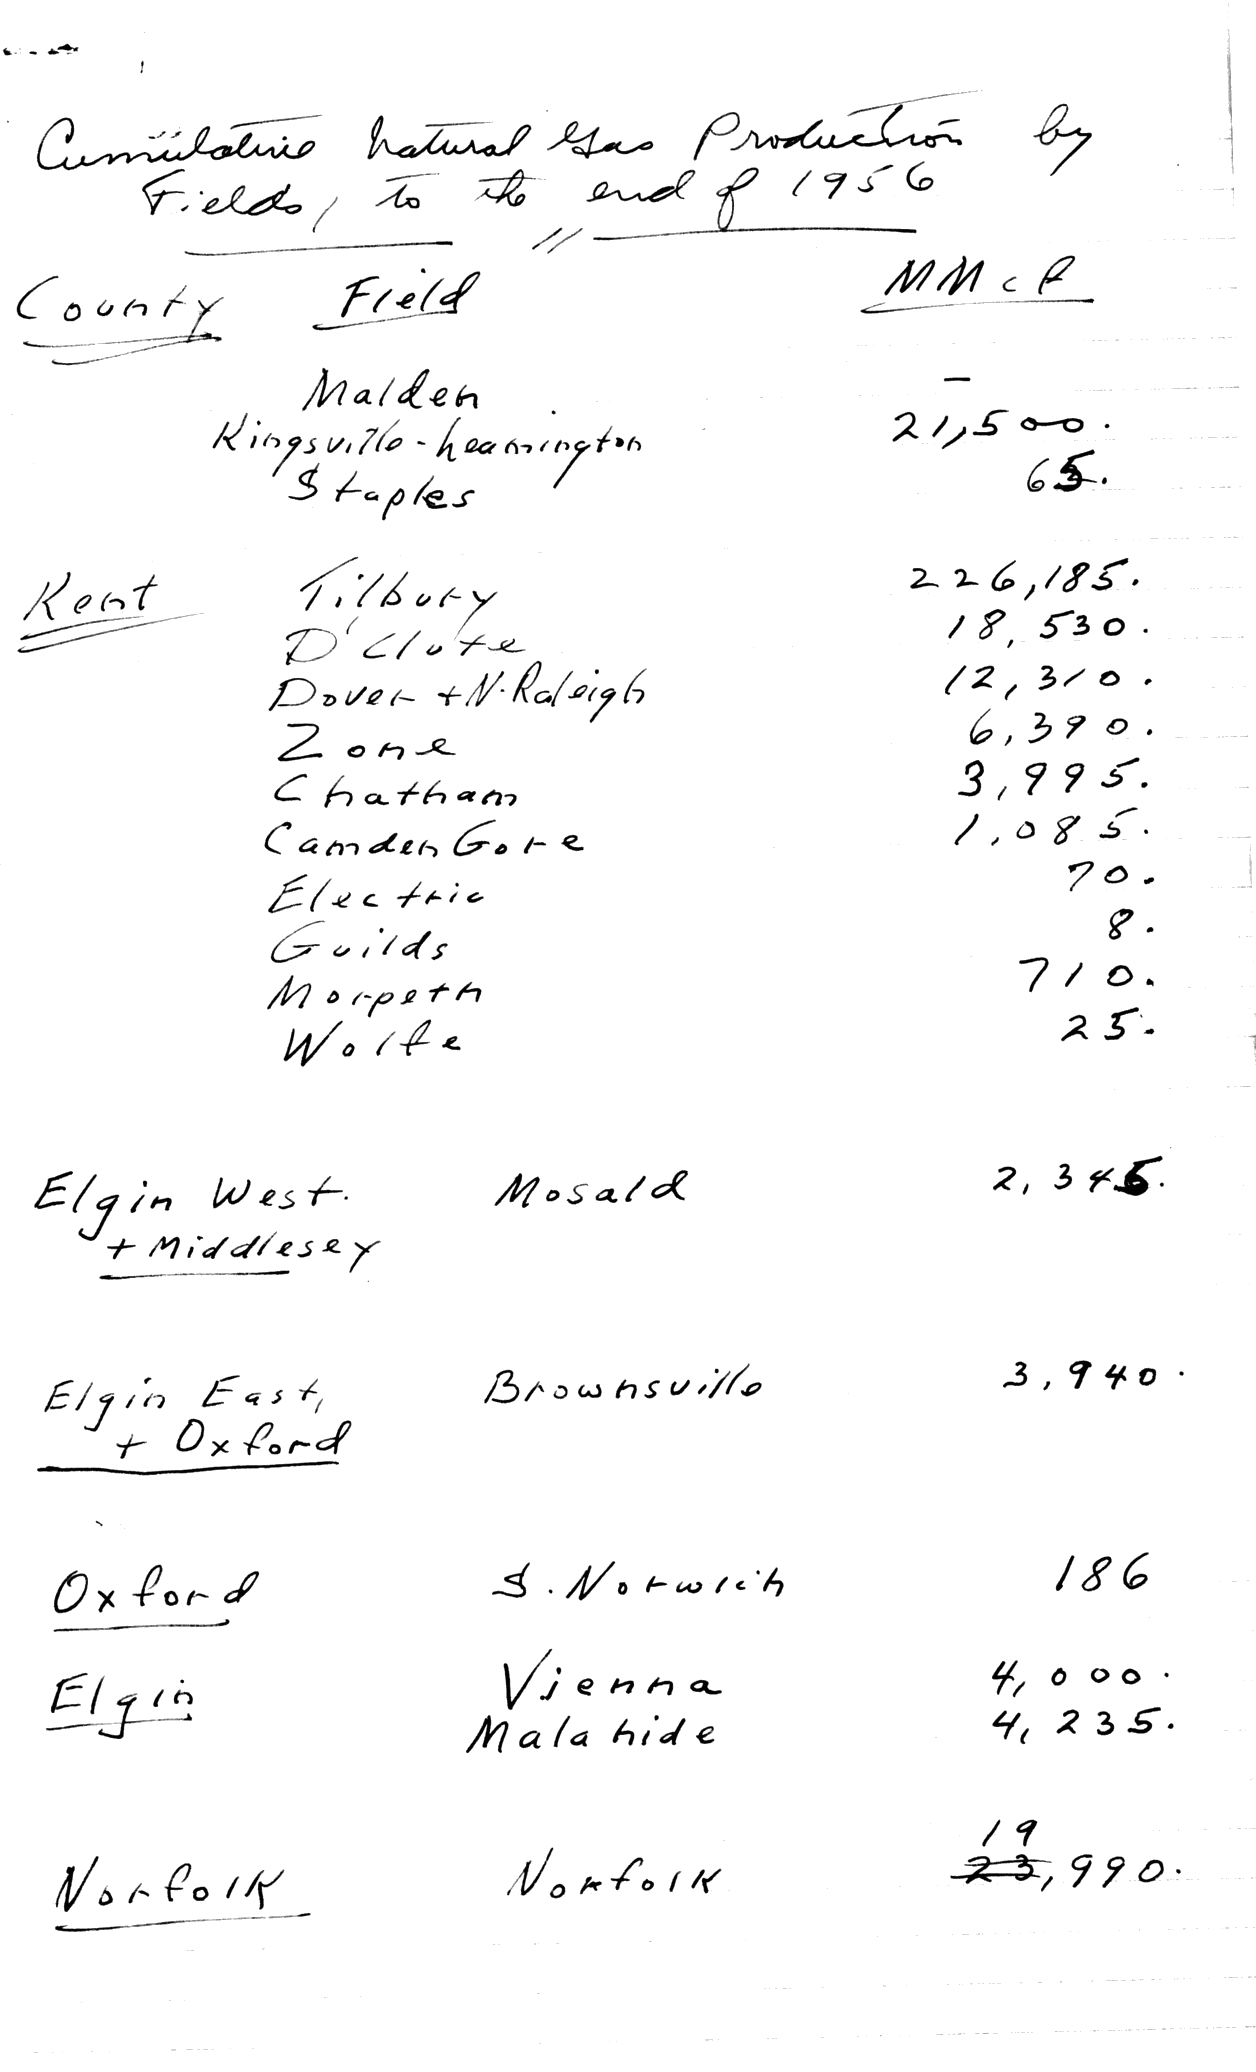 Cumulative Natural Gas Production by
Fields, to the end of 1956
County Field MMcf
Malden —
Kingsville-Leamington 21,500.
Staples 65.
Kent Tilbury 226,185.
D'Clute 18,530.
Dover + N. Raleigh 12,310.
Zone 6,390.
Chatham 3,995.
Camden Gore 1,085.
Electric 70.
Guilds 8.
Morpeth 710.
Wolfe 25.
Elgin West. Mosald 2,345.
+ Middlesex
Elgin East, Brownsville 3,940.
+ Oxford
Oxford S. Norwich 186
Elgin Vienna 4,000.
Malahide 4,235.
19
Norfolk Norfolk 23,990.